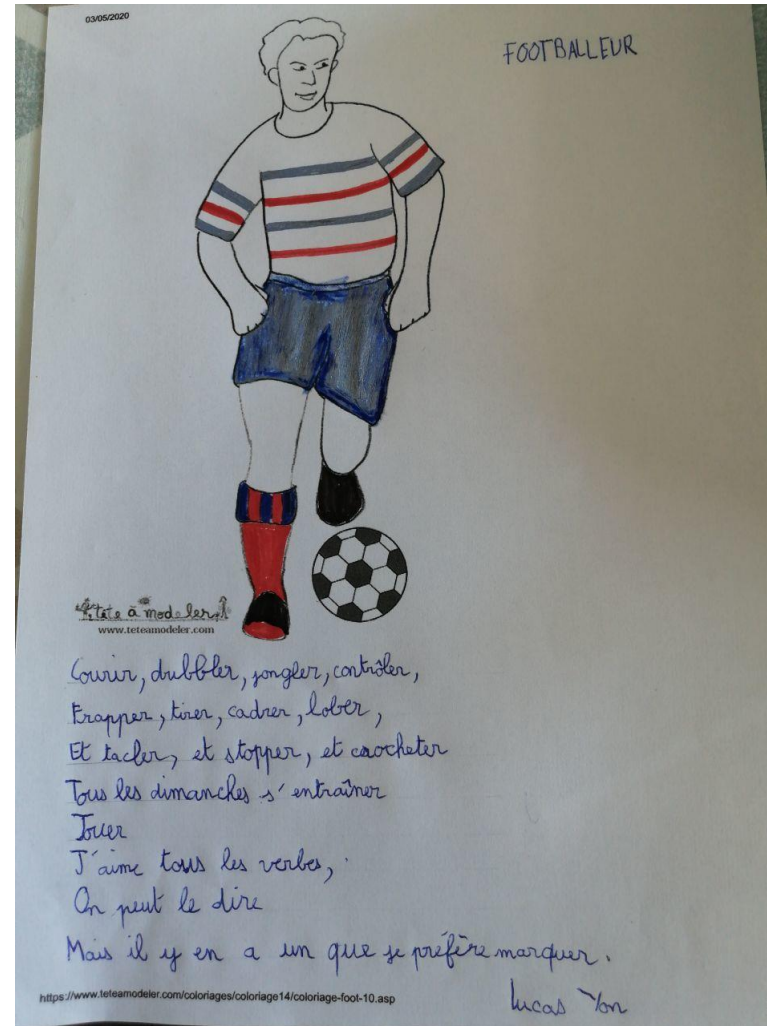 03/05/2020
FOOTBALLEUR
tête à modeler
www.teteamodeler.com
Courir, dribbler, jongler, contrôler,
Frapper, tirer, cadrer, lober,
Et tacler, et stopper, et crocheter
Tous les dimanches s'entraîner
Jouer
J'aime tous les verbes,
On peut le dire
Mais il y en a un que je préfère marquer.
Lucas Yon
https://www.teteamodeler.com/coloriages/coloriage14/coloriage-foot-10.asp